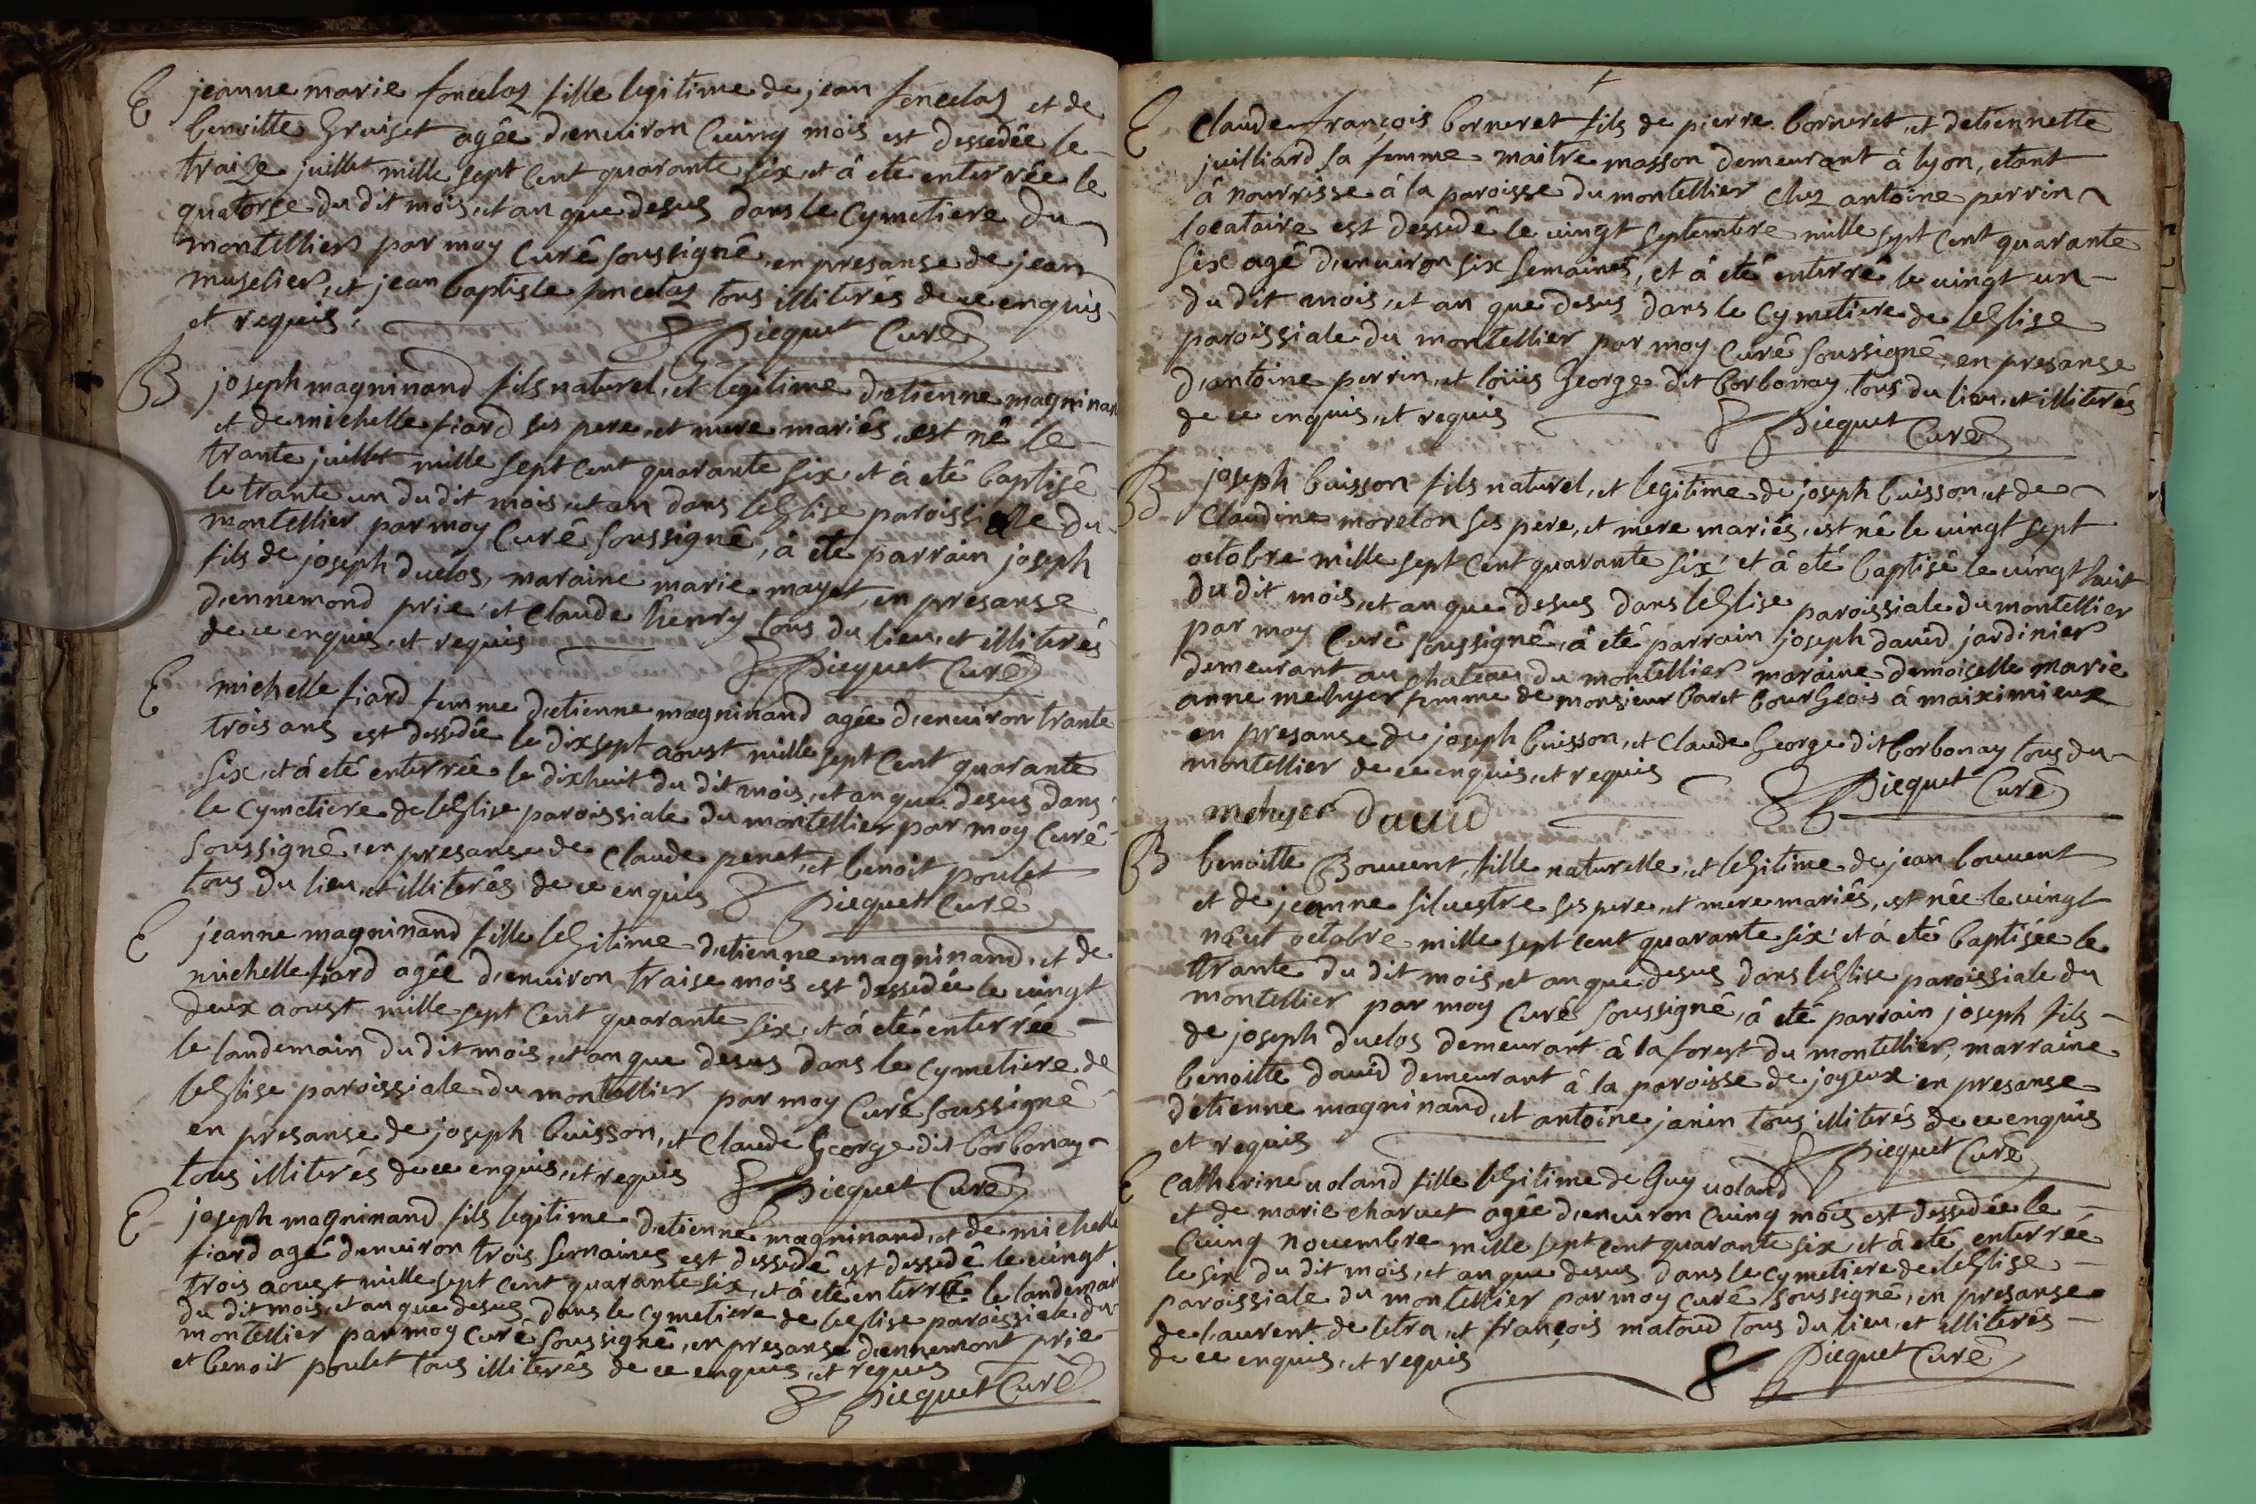 E jeanne marie foncelaz fille legitime de jean foncelaz et de
benoitte Gruiset agêe d'enuiron Cuinq mois est dessedêe le
traize juillet mille sept Cent quarante six, et â etê enterrêe le
quatorse du dit mois, et an que desus dans le Cymetiere du
montellier par moy Curê soussignê, en presanse de jean
muselier, et jean baptiste foncelaz tous illiterés de ce enquis
et requis. Picquet Curê
B joseph magninand fils naturel, et legitime d'etienne magninan
et de michelle fiard ses pere, et mere mariês, est nê le
trante juillet mille sept Cent quarante six, et â etê baptisé
le trante un du dit mois, et an dans leGlise paroissialle du
montellier par moy Curê soussignê, â etê parrain joseph
fils de joseph duclos, maraine marie mayet, en presanse
d'ennemond prie, et Claude henry tous du lieu, et illiterés
de ce enquis, et requis Picquet Curê
E michelle fiard femme d'etienne magninand agêe d'enuiron trante
trois ans est dessedêe le dix sept aoust mille sept Cent quarante
six, et â etê enterrêe le dixhuit du dit mois, et an que desus dans
le Cymetiere de leGlise paroissiale du montellier par moy Curê
soussignê, en presanse de Claude penet, et benoit poulet
tous du lieu, et illiterês de ce enquis Picquet Curê
E jeanne magninand fille leGitime d'etienne magninand, et de
michelle fiard agêe d'enuiron traise mois est dessedêe le vingt
deux aoust mille sept Cent quarante six, et â etê enterrêe
le landemain du dit mois, et an que desus dans le Cymetiere de
leGlise paroissiale du montellier par moy Curê soussignê
en presanse de joseph buisson, et Claude George dit borbonay
tous illiterés de ce enquis, et requis Picquet Curê
E joseph magninand fils legitime d'etienne magninand, et de michelle
fiard agê d'enuiron trois semaines est dessedê est dessedê le vingt
trois aoust mille sept Cent quarante six, et â etê enterrê le landemain
du dit mois, et an que desus dans le Cymetiere de leGlise paroissiale du
montellier par moy Curê soussignê, en presanse d'ennemont prie
et benoit poulet tous illiterês de ce enquis, et requis
Picquet Curê
E Claude françois borneret fils de pierre borneret, et detiennette
juilliard sa femme maitre masson demeurant â lyon, etant
â nourrisse â la paroisse du montellier chez antoine perrin
locataire est dessedê le vingt septembre mille sept Cent quarante
six agê d'enuiron six semaines, et â etê enterrê le vingt un
du dit mois, et an que desus dans le Cymetiere de leGlise
paroissiale du montellier par moy Curê soussignê, en presanse
d'antoine perrin, et loüis George dit borbonay tous du lieu, et illiterés
de ce enquis, et requis Picquet Curê
B joseph buisson fils naturel, et legitime de joseph buisson, et de
Claudine morelon ses pere, et mere mariês, est né le vingt sept
octobre mille sept Cent quarante six, et â etê baptisê le vingt huit
du dit mois, et an que desus dans leGlise paroissiale du montellier
par moy Curê soussignê, â etê parrain joseph dauid jardinier
demeurant au chateau du montellier maraine demoiselle marie
anne mehyer femme de monsieur baret bourGeois â maiximieux
en presanse de joseph buisson, et Claude George dit borbonay tous du
montellier de ce enquis, et requis Picquet Curê
mehyer dauid
B benoitte Bouuent, fille naturelle, et leGitime de jean bouuent
et de jeanne siluestre ses pere, et mere mariês, est nêe le vingt
nœuf octobre mille sept Cent quarante six, et â etê baptisêe le
trante du dit mois, et an que desus dans leGlise paroissiale du
montellier par moy Curê soussignê, â etê parrain joseph fils
de joseph duclos demeurant â la forest du montellier, marraine
benoitte dauid demeurant â la paroisse de joyeux en presanse
d'etienne magninand, et antoine janin tous illiterés de ce enquis
et requis Picquet Curê
E Catherine uoland fille leGitime de Guy uoland
et de marie charuet agêe d'enuiron Cuinq mois est dessedêe le
Cuinq nouembre mille sept Cent quarante six, et â etê enterrêe
le six du dit mois, et an que desus dans le Cymetiere de leGlise
paroissiale du montellier par moy Curê soussignê, en presanse
de laurent de letra, et françois matoud tous du lieu, et illiterês
de ce enquis, et requis Picquet Curê